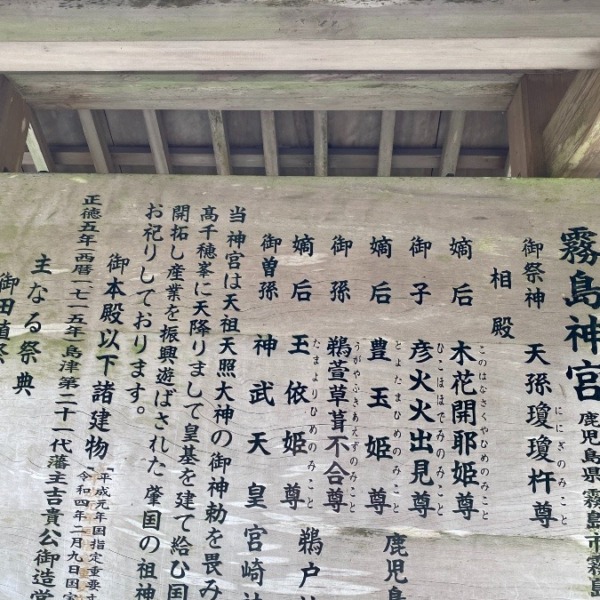 霧島神宮 鹿児島県霧島市霧島
御祭神 天孫瓊瓊杵尊
ににぎのみこと
相殿
嫡后 木花開耶姫尊
このはなさくやひめのみこと
御子 彦火火出見尊
ひこほほでみのみこと 鹿児島
嫡后 豊玉姫尊
とよたまひめのみこと
御孫 鵜萱草葺不合尊 鵜戸
うがやふきあえずのみこと
嫡后 玉依姫尊
たまよりひめのみこと
御曽孫 神武天皇 宮崎神
当神宮は天祖天照大神の御神勅を畏み
高千穂峯に天降りまして皇基を建て給ひ国
開拓し産業を振興遊ばされた肇国の祖神
お祀りしております。
御本殿以下諸建物 「平成元年国指定重要
「令和四年二月九日国宝
正徳五年(西暦一七一五年)島津第二十一代藩主吉貴公御造営
主なる祭典
御田植祭